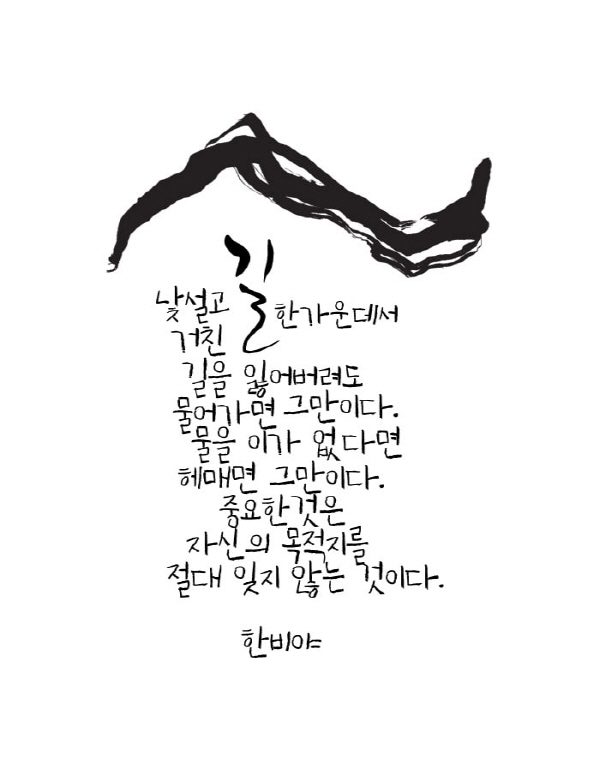 낯설고
거친 길 한가운데서
길을 잃어버려도
물어가면 그만이다.
물을 이가 없다면
헤매면 그만이다.
중요한것은
자신의 목적지를
절대 잊지 않는 것이다.
한비야